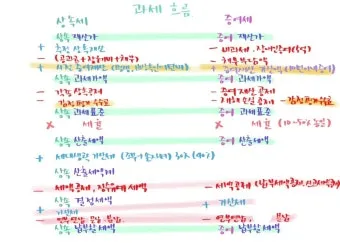 과세 흐름
상속세 증여세
상속 재산가 증여 재산가
+ 추정 상속재산 - 비과세, 장애인증여(5억)
- (공과금+장례비+채무) - 채무부담액
+ 사전 증여재산 +
상속 과세가액 증여 과세가액
- 상속공제 - 증여재산 공제
- 감정평가수수료 - 재해손실 공제 - 감정평가수수료
상속 과세표준 증여 과세표준
× 세율 × 세율 (10~50%)
상속 산출세액 증여 산출세액
+ 세대생략 가산세 30% (40%)
상속 산출세액계
- 세액공제, 징수유예세액 - 세액공제
상속 결정세액
+ 가산세 + 가산세
- 연부연납, 물납, 분납 - 연부연납, 분납
상속 납부할세액 증여 납부할세액